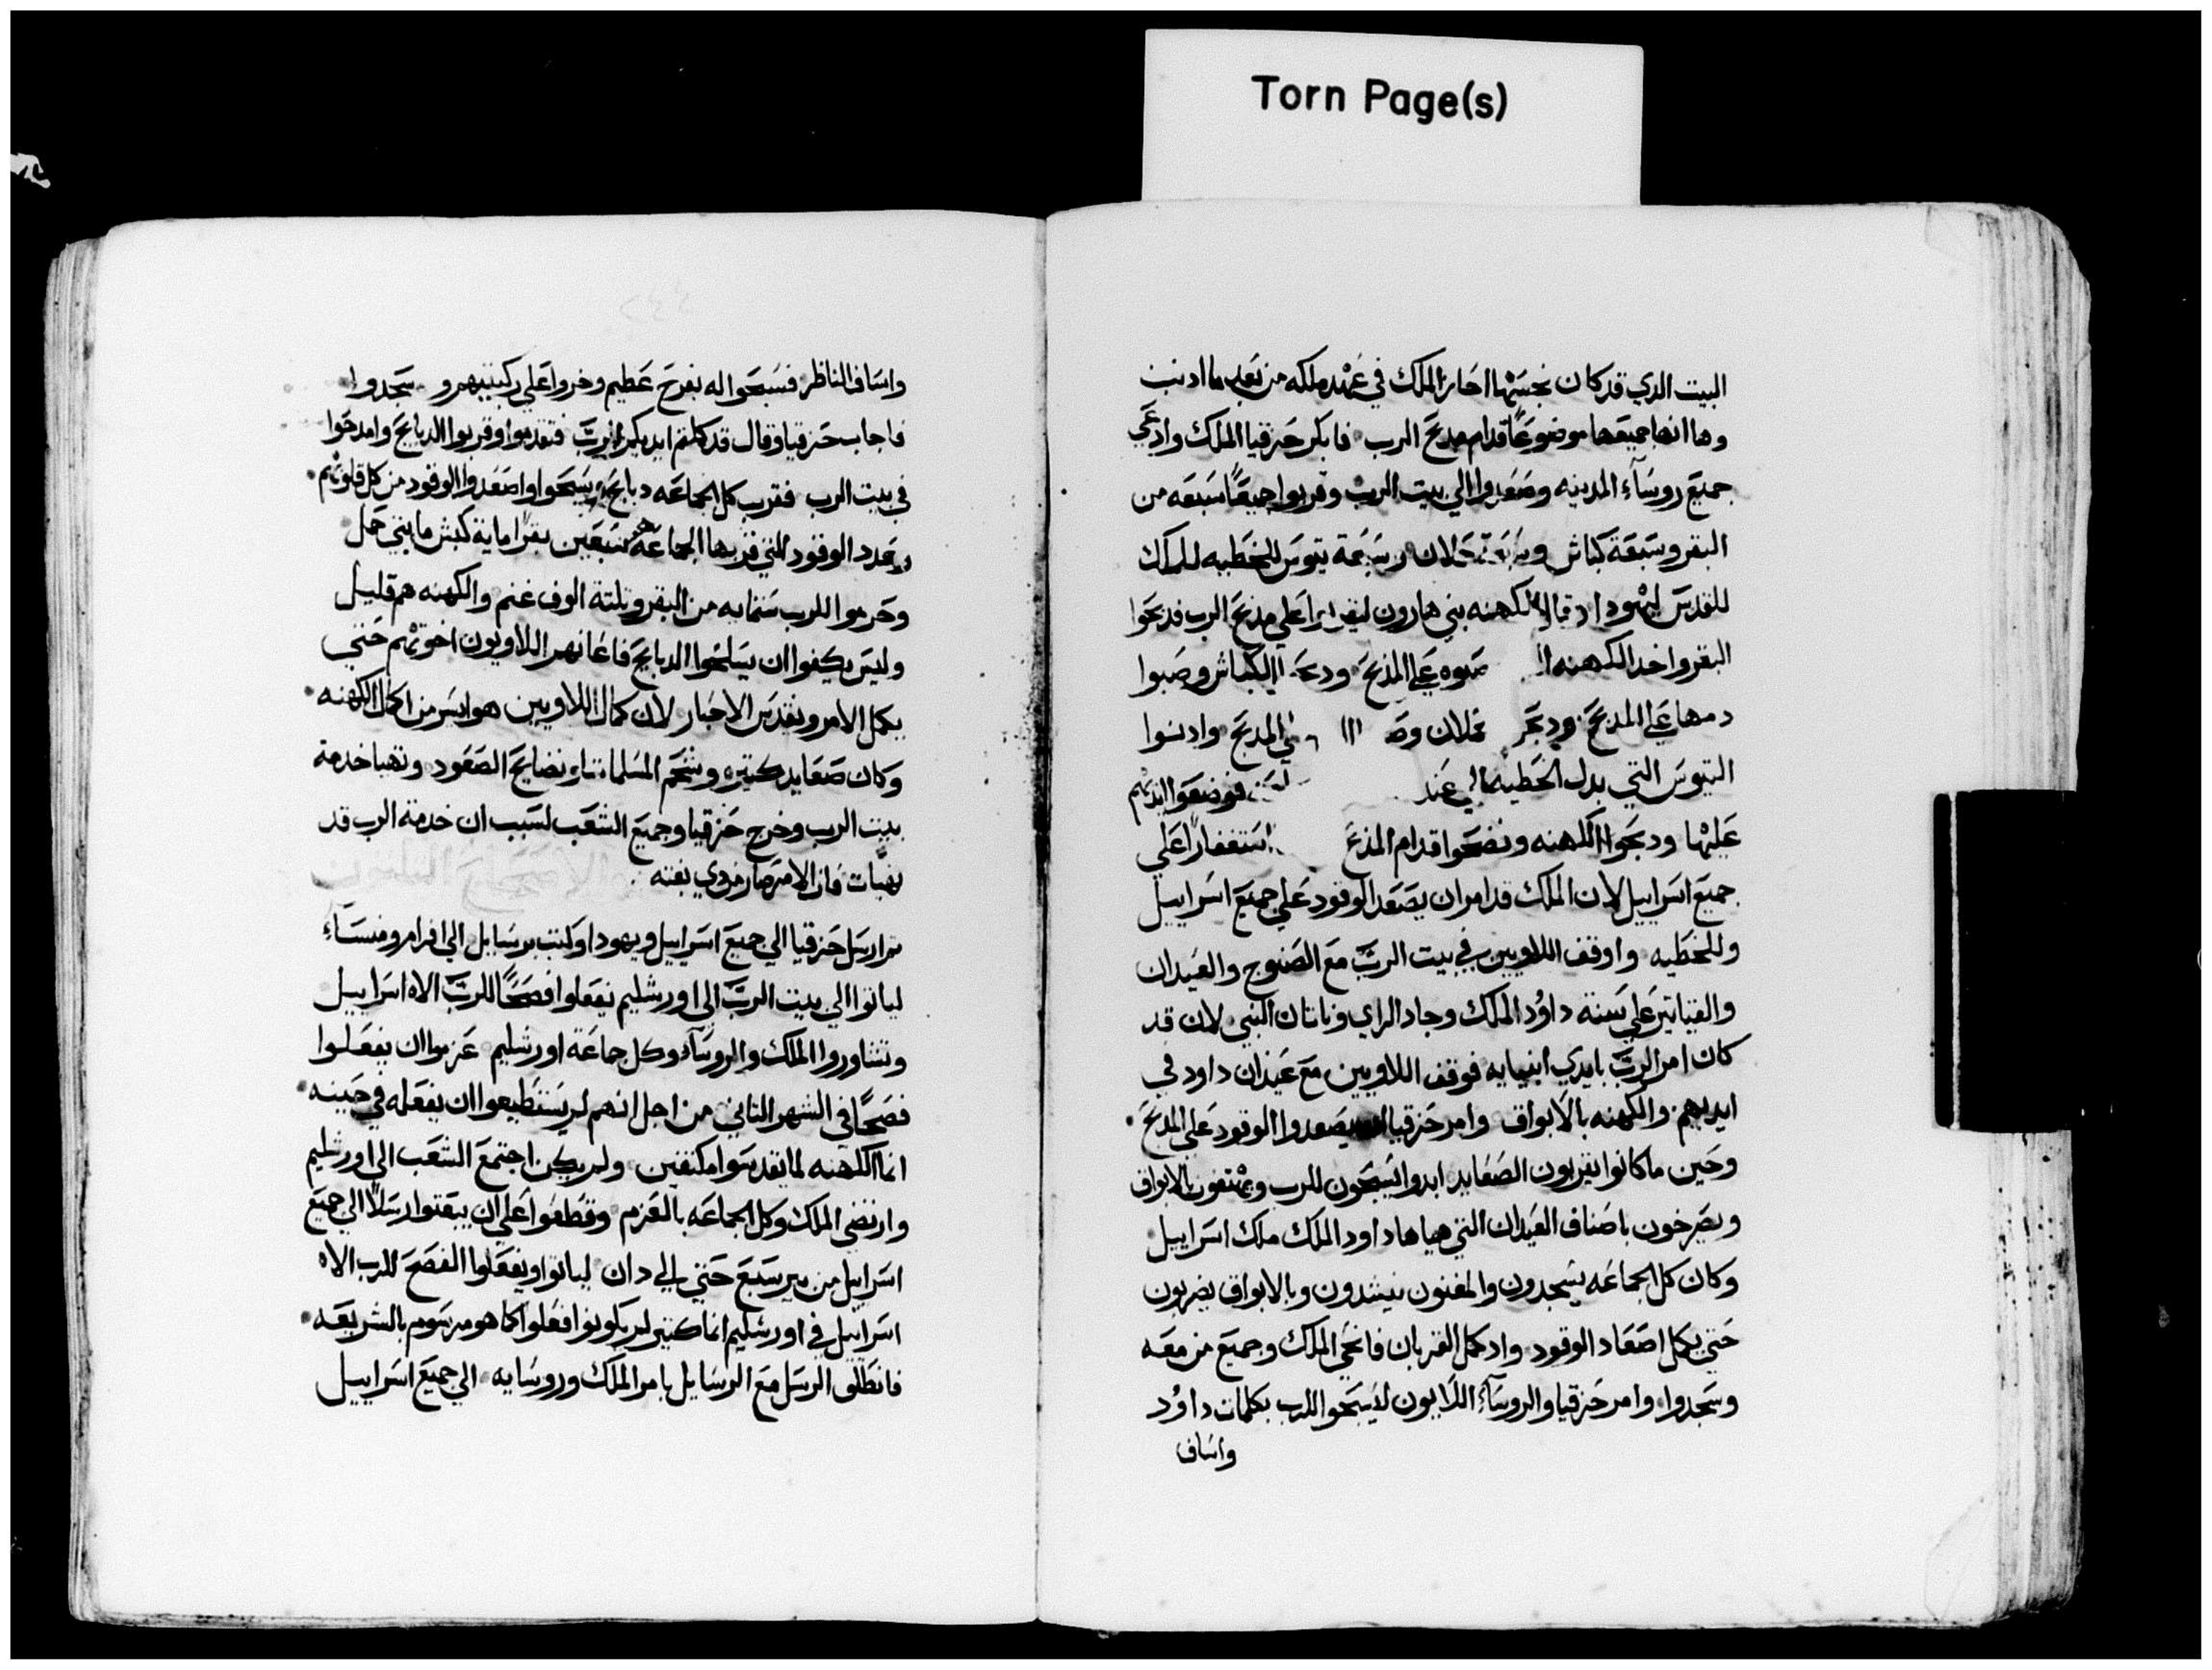 Torn Page(s)
البيت الدي قد كان نجسها احاز الملك في عهد ملكه من بعد ما ادنب
وها انها جميعها موضوعًا قدام مدبح الرب فابكر حزقيا الملك وادعي
جميع روسآء المدينه وصعدوا الي بيت الرب وقربوا جميعًا سبعه من
البقر وسبعة كباش وسبعة حملان وسبعة تيوس للخطيه للملك
للقدس ليهودا وقال للكهنه بني هارون ليقربوا علي مدبح الرب فدبحوا
البقر واخد الكهنه صبوه علي المذبح ودبحوا الكباش وصبوا
دمها علي المدبح ودبحو حملان المدبح وادنوا
التيوس التي بدل الخطيه الي عند فوضعوا ايديهم
عليها ودبحوا الكهنه ونضحوا قدام المذبح استغفارًا علي
جميع اسراييل لان الملك قد امر ان يصعد الوقود علي جميع اسراييل
وللخطيه واوقف اللاويين في بيت الربّ مع الصنوج والعيدان
والقيتاتير علي سنة داوُد الملك وجاد الراي وناتان النبي لان قد
كان امر الربّ بايدي انبيايه فوقف اللاويين مع عيدان داود في
ايديهم والكهنه بالابواق وامر حزقيا يصعدوا الوقود علي المدبح
وحين ما كانوا يقربون الصعايد ابدوا يسبحون للرب ويهتفون بالابواق
ويصرخون باصناف العيدان التي هياها داود الملك ملك اسراييل
وكان كل الجماعه يسجدون والمغنون ينيشدون وبالابواق يضربون
حتي يكمل اصعاد الوقود وادكمل القربان فانحي الملك وجميع من معه
وسجدوا وامر حزقيا والروسآء اللاويون ليسبحوا للرب بكلمات داوُد
واساف
واساف الناظر فسبحوا له بفرح عظيم وخروا علي ركبتيهم و سجدوا
فاجاب حزقيا وقال قد كملتم ايديكم للربّ فتقدموا وقربوا الدبايح وامدحوا
في بيت الرب فقرب كل الجماعه دبايح يسبحوا واصعدوا الوقود من كل قلوبهم
وعدد الوقود التي قربها الجماعه سبعين بقرا ماية كبش مايتي حمل
وحرموا للرب ستمايه من البقر وتلتة الوف غنم والكهنه هم قليل
وليس يكيفوا ان يسلخوا الدبايح فاعانهم اللاويون اخوتهم حتي
يكمل الامر ويقدس الاحبار لان كمال اللاويين هو ايسر من اكمال الكهنه
وكان صعايد كتيره وشحم المسلمات ونضايح الصعود وتهيا خدمة
بيت الرب وخرج حزقيا وجميع الشعب لسبب ان خدمة الرب قد
تهيات فان الامر صار فدي بغته
تم ارسل حزقيا الي جميع اسراييل ويهودا وكتب برسايل الي افرام ومنسآء
لياتوا الي بيت الربّ الي اورشليم يفعلوا فصحًا للربّ الاه اسراييل
وتشاوروا الملك والروسآء وكل جماعة اورشليم عزموا ان يفعلوا
فصحًا في الشهر التاني من اجل انهم لم يستطيعوا ان يفعله في حينه
انما الكهنه لما يقدسوا مكتفين ولم يكن اجتمع الشعب الي اورشليم
وارتضي الملك وكل الجماعه بالعزم وقطعوا علي ان يبعتوا رسلًا الي جميع
اسراييل من بير سبع حتي الي دان لياتوا ويفعلوا الفصح للرب الاه
اسراييل في اورشليم انما كتير لم يكونوا افعلوا كما هو مرسوم بالشريعه
فانطلق الرسل مع الرسايل بامر الملك وروسايه الي جميع اسراييل